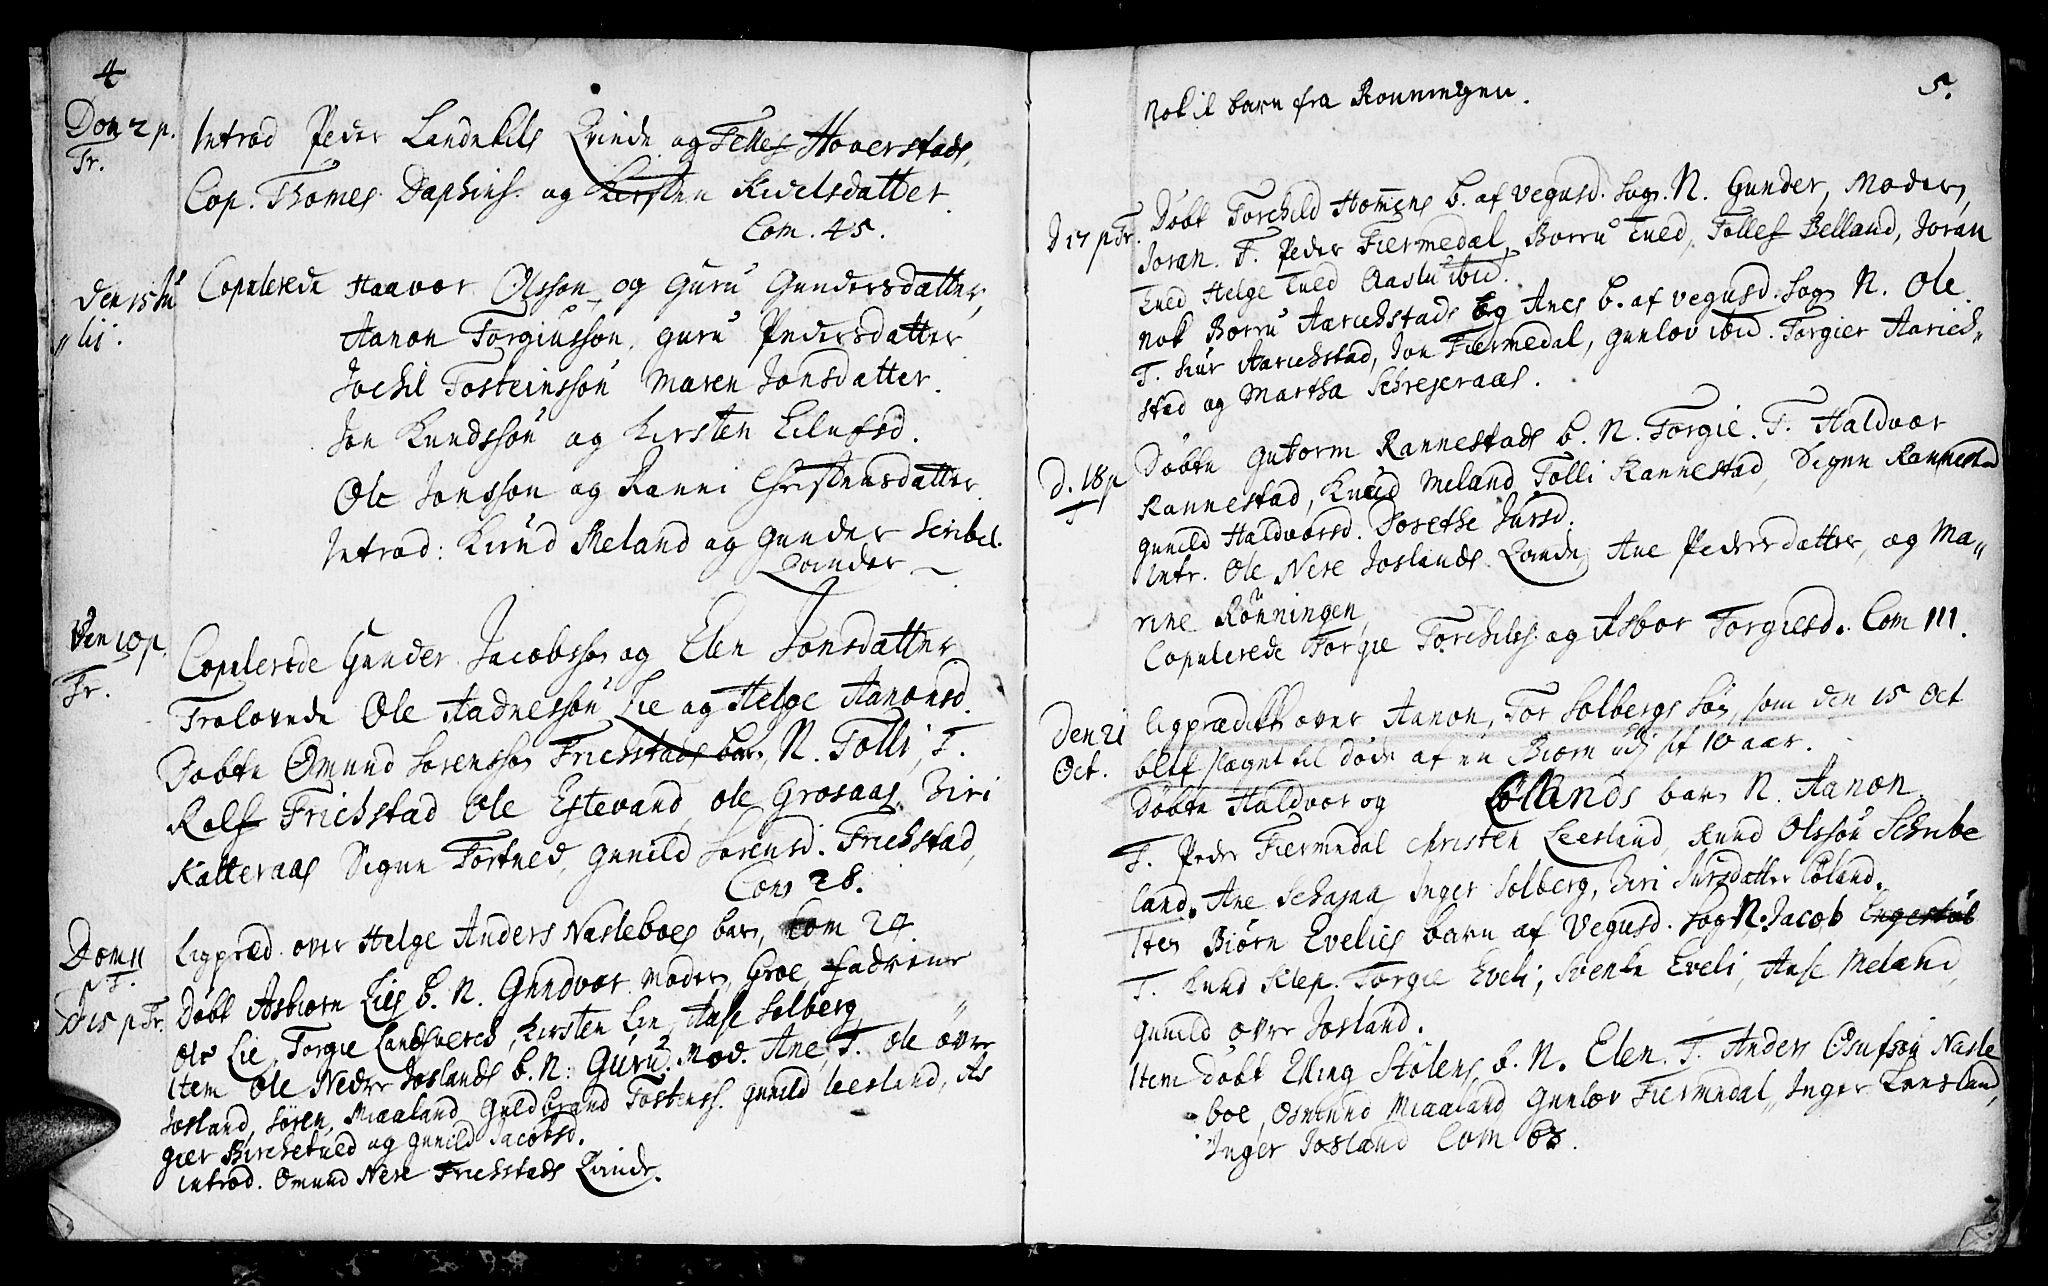 4
Dom 2 p. Introd Peder Landekils Qvinde og Tellef Hoverstads,
Tr.
Cop. Thomes Daphins. og Kirsten Kivelsdatter.
Com. 45.
den 15 Ju Copulerede Haavor Olsson og Guru Gundersdatter,
"lii. Aanon Torgiusson, guru Pedersdatter
Jochil Tosteinsson Maren Jonsdatter.
Jon Knudsson og Kirsten Eilufsd.
Ole Jonsson og Ranni Christensdatter.
Introd: Knud Meland og Gunder Scribel.
Qvinder
Den 10 p. Copulerede Gunder Jacobsson og Elen Jonsdatter
Tr.
Trolovede Ole Aadnesson Lie og Helge Aanonsd.
Døbte Omund Sorensson Frichstads barn, N. Tolli, F.
Rolf Frichstad Ole Estevand, ole Grosaas, Siri
Katteraas Signe Tortved, gunild Sorensd. Frichstad,
Com 28.
Dom 11 Ligpræd. over Helge Anders Nasleboes barn, Com 24.
p T.
D 15 p Tr. Døbt Asbiørn Lies b. N. Gundvor Moder, Groe, fadrene
Ole Lie, Torgie Landsverch, Kirsten Lie, Aase Solberg
Item Ole Nedre Joslands b. N: Guru. Mod. Ane, F. Ole øvre
Josland, Søren, Miaaland Guldbrand Tostenss. gunild leesland, As
gier Birchetved og gunild Jacobsd.
introd. Omund Nere Frichstads Qvinde.
5.
Nok it barn fra Ronningen.
D 17 p Tr. Døbt Torchild Hommens b. af Vegusd. Sogn. N. Gunder, Moder,
Joran. F. Peder Fiermedal, Borru Tved, Tollef Belland, Joran
Tved Helge Tved Aaslu ibid.
Nok Borru Aarichstads og Anes b. af vegusd. Sogn N. Ole.
F. Siur Aarichstad, Jon Fiermedal, gunlov ibid. Torgier Aarich"
stad og Martha Schrejeraas.
D. 18 p Døbte Gutorm Rannestads b. N. Torgie. F. Haldvor
T
Rannestad, Knud Meland Tolli Rannestad, Signe Rannestad
gunild Haldvorsd. Dorethe Jursd.
Intr. Ole Nere Joslands Qvinde, Ane Pedersdatter, og Ma"
rine Rønningen
Copulerede Torgie Torchilss og Asbor Torgiesd. Com 111.
Den 21 ligprædikk over Aanon, Tor Solbergs Søn, som den 15 Oct
Oct. blef slaget til døde af en Biørn udj sit 10 aar.
Døbte Haldvor og Lølands barn N. Aanon.
F. Peder Fiermedal Christen Leesland, Knud Olsson Schribe
land. Ane Inger Solberg, Siri Jursdatter Løland.
Item Biørn Evelies barn af Vegusd. Sogn N. Jacob
F. Knud Klep. Torgie Eveli, Svenke Eveli, Aase Meland,
gunild øvre Josland.
Item døbt Elling Stølens b. N. Elen. F. Anders Osufson Nasle
boe, Osmund Miaaland Gunlov Fiermedal, Inger Lansland,
Inger Josland Com 63.